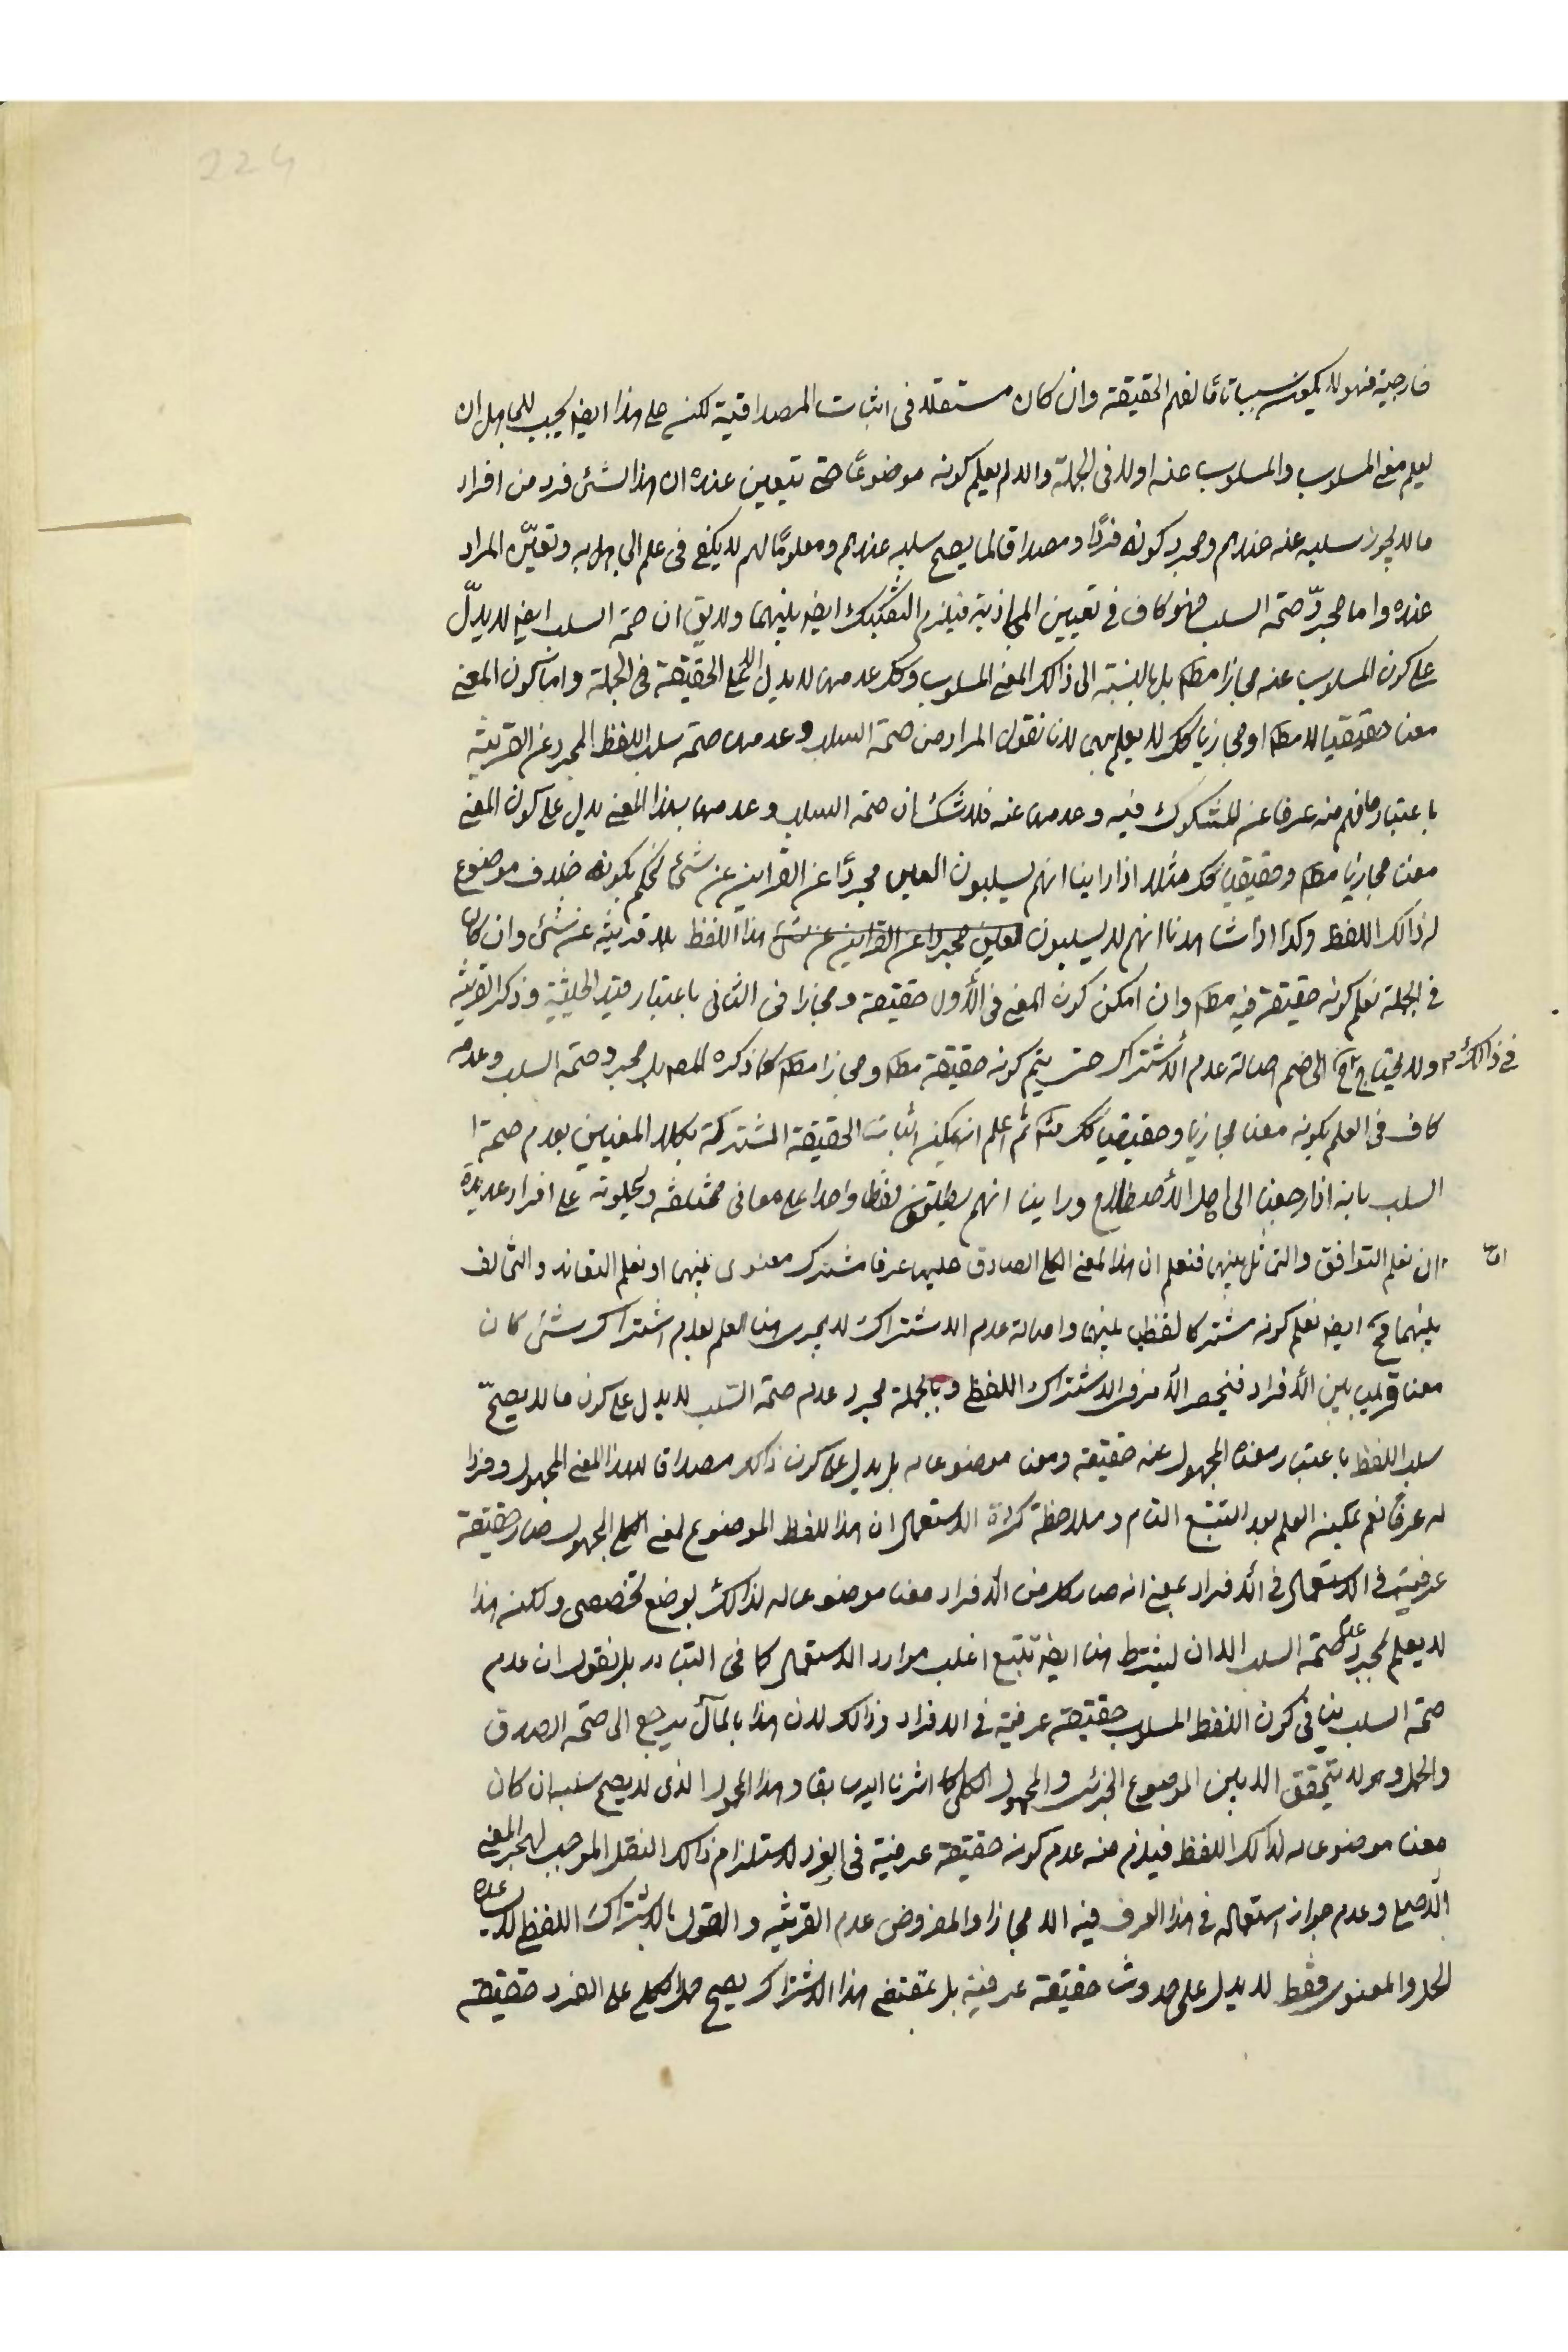 224
خارجية فهو لا يكون سببا تامّا لفهم الحقيقة وان كان مستقلا فى اثبات المصداقية لكن على هذا ايضا يجب للجاهل ان
يعلم معنى المسلوب والمسلوب عنه اولا فى الجملة وان لم يعلم كونه موضوعًا حتى يتعين عنده ان هذا الشئ فرد من افراد
ما لا يجوز سلبه عنه عندهم ومجرد كونه فردًا ومصداقا لما يصح سلبه عندهم ومعلومًا لهم لا يكفى فى علم الجاهل به وتعيّن المراد
عنده واما مجردّ صحة السلب فهو كاف فى تعيين المجازية فيلزم التفكيك ايضا بينهما ولا يق ان صحة السلب ايضا لا يدلّ
على كون المسلوب عنه مجازا مطلقا بل بالنسبة الى ذالك المعنى المسلوب وكك عدمها لا يدل الا على الحقيقة فى الجملة واما كون المعنى
معنا حقيقيا له مطلقا او مجازيا كك لا يعلم بهى لانا نقول المراد من صحة السلب وعدمها صحة سلب اللفظ المجرد عن القرينة
باعتبار ما فهم منه عرفا عن المشكوك فيه وعدمها عنه فلا شك ان صحة السلب وعدمها بهذا المعنى يدل على كون المعنى
معنا مجازيا مطلقا وحقيقيا كك مثلا اذا راينا انهم يسلبون العين مجردًا عن القراين عن شئ نحكم بكونه خلاف موضوع
له ذالك اللفظ وكذا اذا شاهدنا انهم لا يسلبون العين مجردا عن القراين عن شئ هذا اللفظ بلا قرينة عن شئ وان كان
فى الجملة نعلم كونه حقيقة فيه مطلقا وان امكن كون المعنى فى الأول حقيقة ومجازا فى الثانى باعتبار قيد الحيثية وذكر القرينة
فى ذالك ولا يحتاج ح الى ضم اصالة عدم الأشتراك حتى يتم كونه حقيقة مطلقا ومجازا مطلقا كما ذكره المصه بل مجرد صحة السلب وعدمه
كاف فى العلم بكونه معنا مجازيا وحقيقيا كك ثم اعلم انه يمكن اثبات الحقيقة المشتركة بكلا المعنيين بعدم صحة
السلب بانه اذا رجعنا الى اهل الأصطلاح وراينا انهم يطلقون لفظا واحدا على معانى مختلفة ويحملونه على افراد عديدة
ان نعلم التوافق والتماثل بينها فنعلم ان هذا المعنى الكلى الصادق عليها عرفا مشترك معنوى بينها او نعلم التعاند والتخالف
بينهما فح ايضا نعلم كونه مشتركا لفظيا بينها واصالة عدم الاشتراك لا يجرى هنا للعلم بعدم اشتراك شئ كان
معنا قريب بين الأفراد فينحصر الأمر فى الاشتراك اللفظى وبالجملة مجرد عدم صحة السّلب لا يدل على كون ما لا يصحّ
سلب اللفظ باعتبار معناه المجهول عنه حقيقة ومعنا موضوعا له بل يدل على كون ذالك مصداقا لهذا المعنى المجهول وفردا
له عرفًا نعم يمكن العلم بعد التتبع التام وملاحظة كثرة الاستعمال ان هذا اللفظ الموضوع لمعنى الكلى المجهول صار حقيقة
عرفية فى الاستعمال فى الأفراد بمعنى انه صار كل من الأفراد معنا موضوعا له لذالك بوضع تخصصى ولكن هذا
لا يعلم بمجرد عدم صحة السلب الا ان يشترط هنا ايضا تتبع اغلب موارد الاستعمال كما فى التبادر بل نقول ان عدم
صحة السلب ينافى كون اللفظ المسلوب حقيقة عرفية فى الافراد وذالك لان هذا بالمآل يرجع الى صحة الصدق
والحمل وهو لا يتحقق الا بين الموضوع الجزئى والمحمول الكلى كما اشرنا اليه سابقا وهذا المحمول الذى لا يصح سلبه ان كان
معنا موضوعا له لذالك اللفظ فيلزم منه عدم كونه حقيقة عرفية فى الفرد لاستلزام ذالك النقل الموجب لهجر المعنى
الأصلى وعدم جواز استعماله فى هذا العرف فيه الا مجازا والمفروض عدم القرينة والقول بالاشتراك اللفظى لا يساعده
الحمل والمعنوى فقط لا يدل على حدوث حقيقة عرفية بل بمقتضى هذا الاشتراك يصح حمل الكلى على الفرد حقيقة